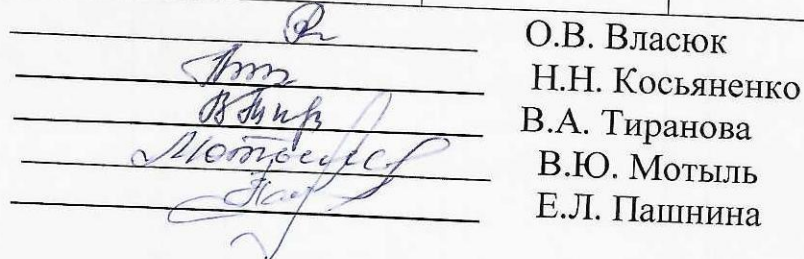 О.В. Власюк
Н.Н. Косьяненко
В.А. Тиранова
В.Ю. Мотыль
Е.Л. Пашнина